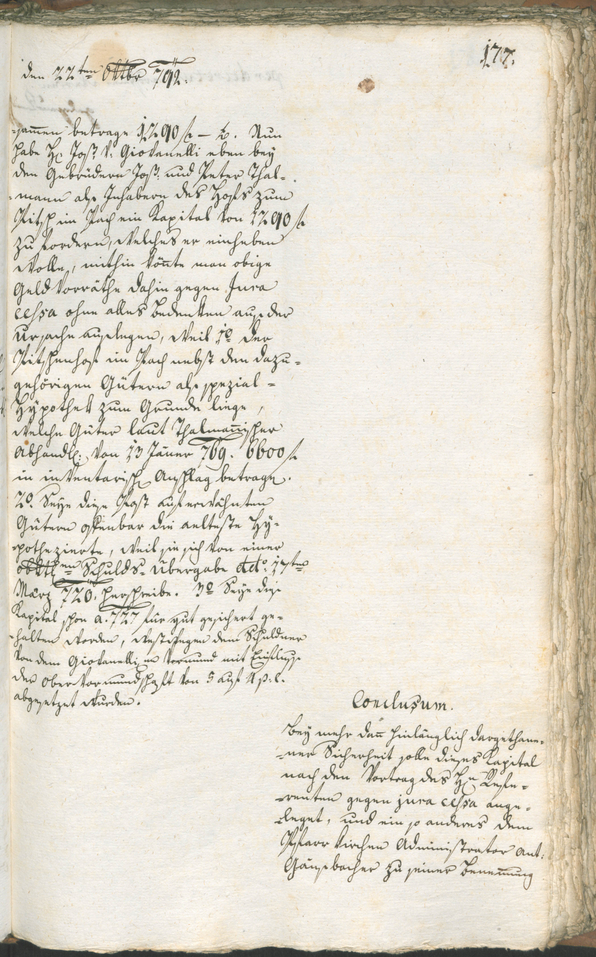 177.
den 22ten Oktbr 792.
sam̄en betrage 1290 f — x. Nun
habe Hr Jos. v. Giovanelli eben bey
den Gebrüdern Jos. und Peter Thal-
mann als Inhabern des Hofs zum
Pitsch im Pach ein Kapital von 1290 f
zu fordern, welches er einheben
wolle, mithin könte man obige
Geldvorräthe dahin gegen Jura
cessa ohne alles Bedenken aus der
Ursache anlegen, weil 1o der
Pitschenhof im Pach nebst den dazu-
gehörigen Gütern als spezial-
Hypothek zum Grunde liege,
welche Güter laut Thalmañischer
Abhandl: von 13 Jäner 769. 6600 f
in inventarisch Anschlag betrage.
2o Seye diese Post auf erwähnten
Gütern offenbar die aelteste Hy-
pothezierte, weil sie sich von einer
Schulds-Übergabe ddo 17ten
März 720. herschreibe. 3o Seye dies
Kapital schon a. 727 für gut gesichert ge-
halten worden, weßwegen dem Schuldner
von dem Giovanellischen Vormund mit Einfluß
der Obervormundschaft von 5 auf 4 p. C.
abgesetzt wurden.
Conclusum.
Bey mehr dañ hinlänglich dargethane-
ner Sicherheit solle dieses Kapital
nach dem Vortrag des Hn Refe-
renten gegen jura cessa ange-
leget, und ein so anderes dem
Pfarrkirchen Administrator Ant:
Gänsbacher zu seiner Benennung